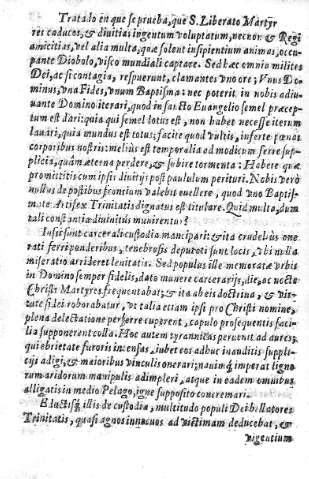 Tratado en que se prueba, que S. Liberato Martyr
res caducos, & divitias ingentum voluptatum, necnon & Regi
amicitias, vel alia multa, quæ solent insipientium animas, occu-
pante Diobolo, visco mundiali captare. Sed hæc omnia milites
Dei, ac si contagia, respuerunt, clamantes vno ore; Vnus Do-
minus, vna Fides, vnum Baptisma: nec poterit in nobis adiu-
uante Domino iterari, quod in sancto Euangelio semel præcep-
tum est dari: quia qui semel lotus est, non habet necesse iterum
lauari, quia mundus est totus; facite quod vultis, inferte pœnas
corporibus nostris: melius est temporalia ad modicum ferre sup-
plicia, quàm æterna perdere, & subire tormenta: Habere quæ
promittitis cum ipsis divitijs post paululum perituri. Nobis verò
nullus de postibus frontium valebit euellere, quod vno Baptis-
mate Artifex Trinitatis dignatus est titulare. Quid multa, dum
tali constantia diuinitùs munirentur?
Iusit sint carcerali custodia mancipari: & ita crudelibus one-
rati ferri ponderibus, tenebrosis deputati sunt locis, vbi nulla
miseratio arrideret lenitatis. Sed populus ille memoratæ vrbis
in Domino semper fidelis, dato munere carcerarijs, die, ac nocte
Christi Martyres frequentabat; & ita ab eis doctrina, & vir-
tute fidei roborabatur, vt talia etiam ipsi pro Christi nomine,
plena delectatione perferre cuperent, capulo prosequentis faci-
lia supponerent colla. Hoc autem tyrannicas peruenit ad aures;
qui ebrietate furoris incensus, iubet eos adhuc inauditis suppli-
cijs adigi, & maioribus vinculis onerari; nauimq; imperat ligno-
rum aridorum manipulis adimpleri, atque in eadem omnibus
alligatis in medio Pelago, igne supposito concremari.
Eductisq; illis de custodia, multitudo populi Dei bellatores
Trinitatis, quasi agnos innocuos ad victimam deducebat, &
vigentium